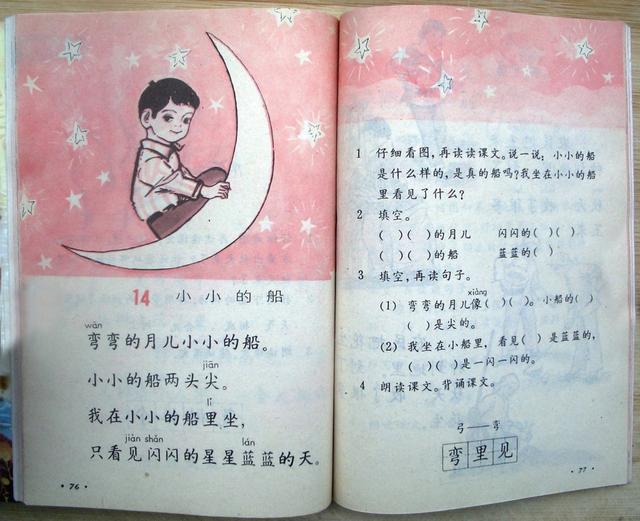 14 小小的船
wān
弯弯的月儿小小的船。
jiān
小小的船两头尖。
lǐ
我在小小的船里坐，
jiàn shǎn lán
只看见闪闪的星星蓝蓝的天。
·76·
1 仔细看图，再读读课文。说一说：小小的船
是什么样的，是真的船吗？我坐在小小的船
里看见了什么？
2 填空。
( )( )的月儿 闪闪的( )( )
( )( )的船 蓝蓝的( )
3 填空，再读句子。
xiàng
(1) 弯弯的月儿像( )( )。小船的( )
( )是尖的。
(2) 我坐在小船里，看见( )是蓝蓝的，
( )( )是一闪一闪的。
4 朗读课文。背诵课文。
弓——弯
弯里见
·77·